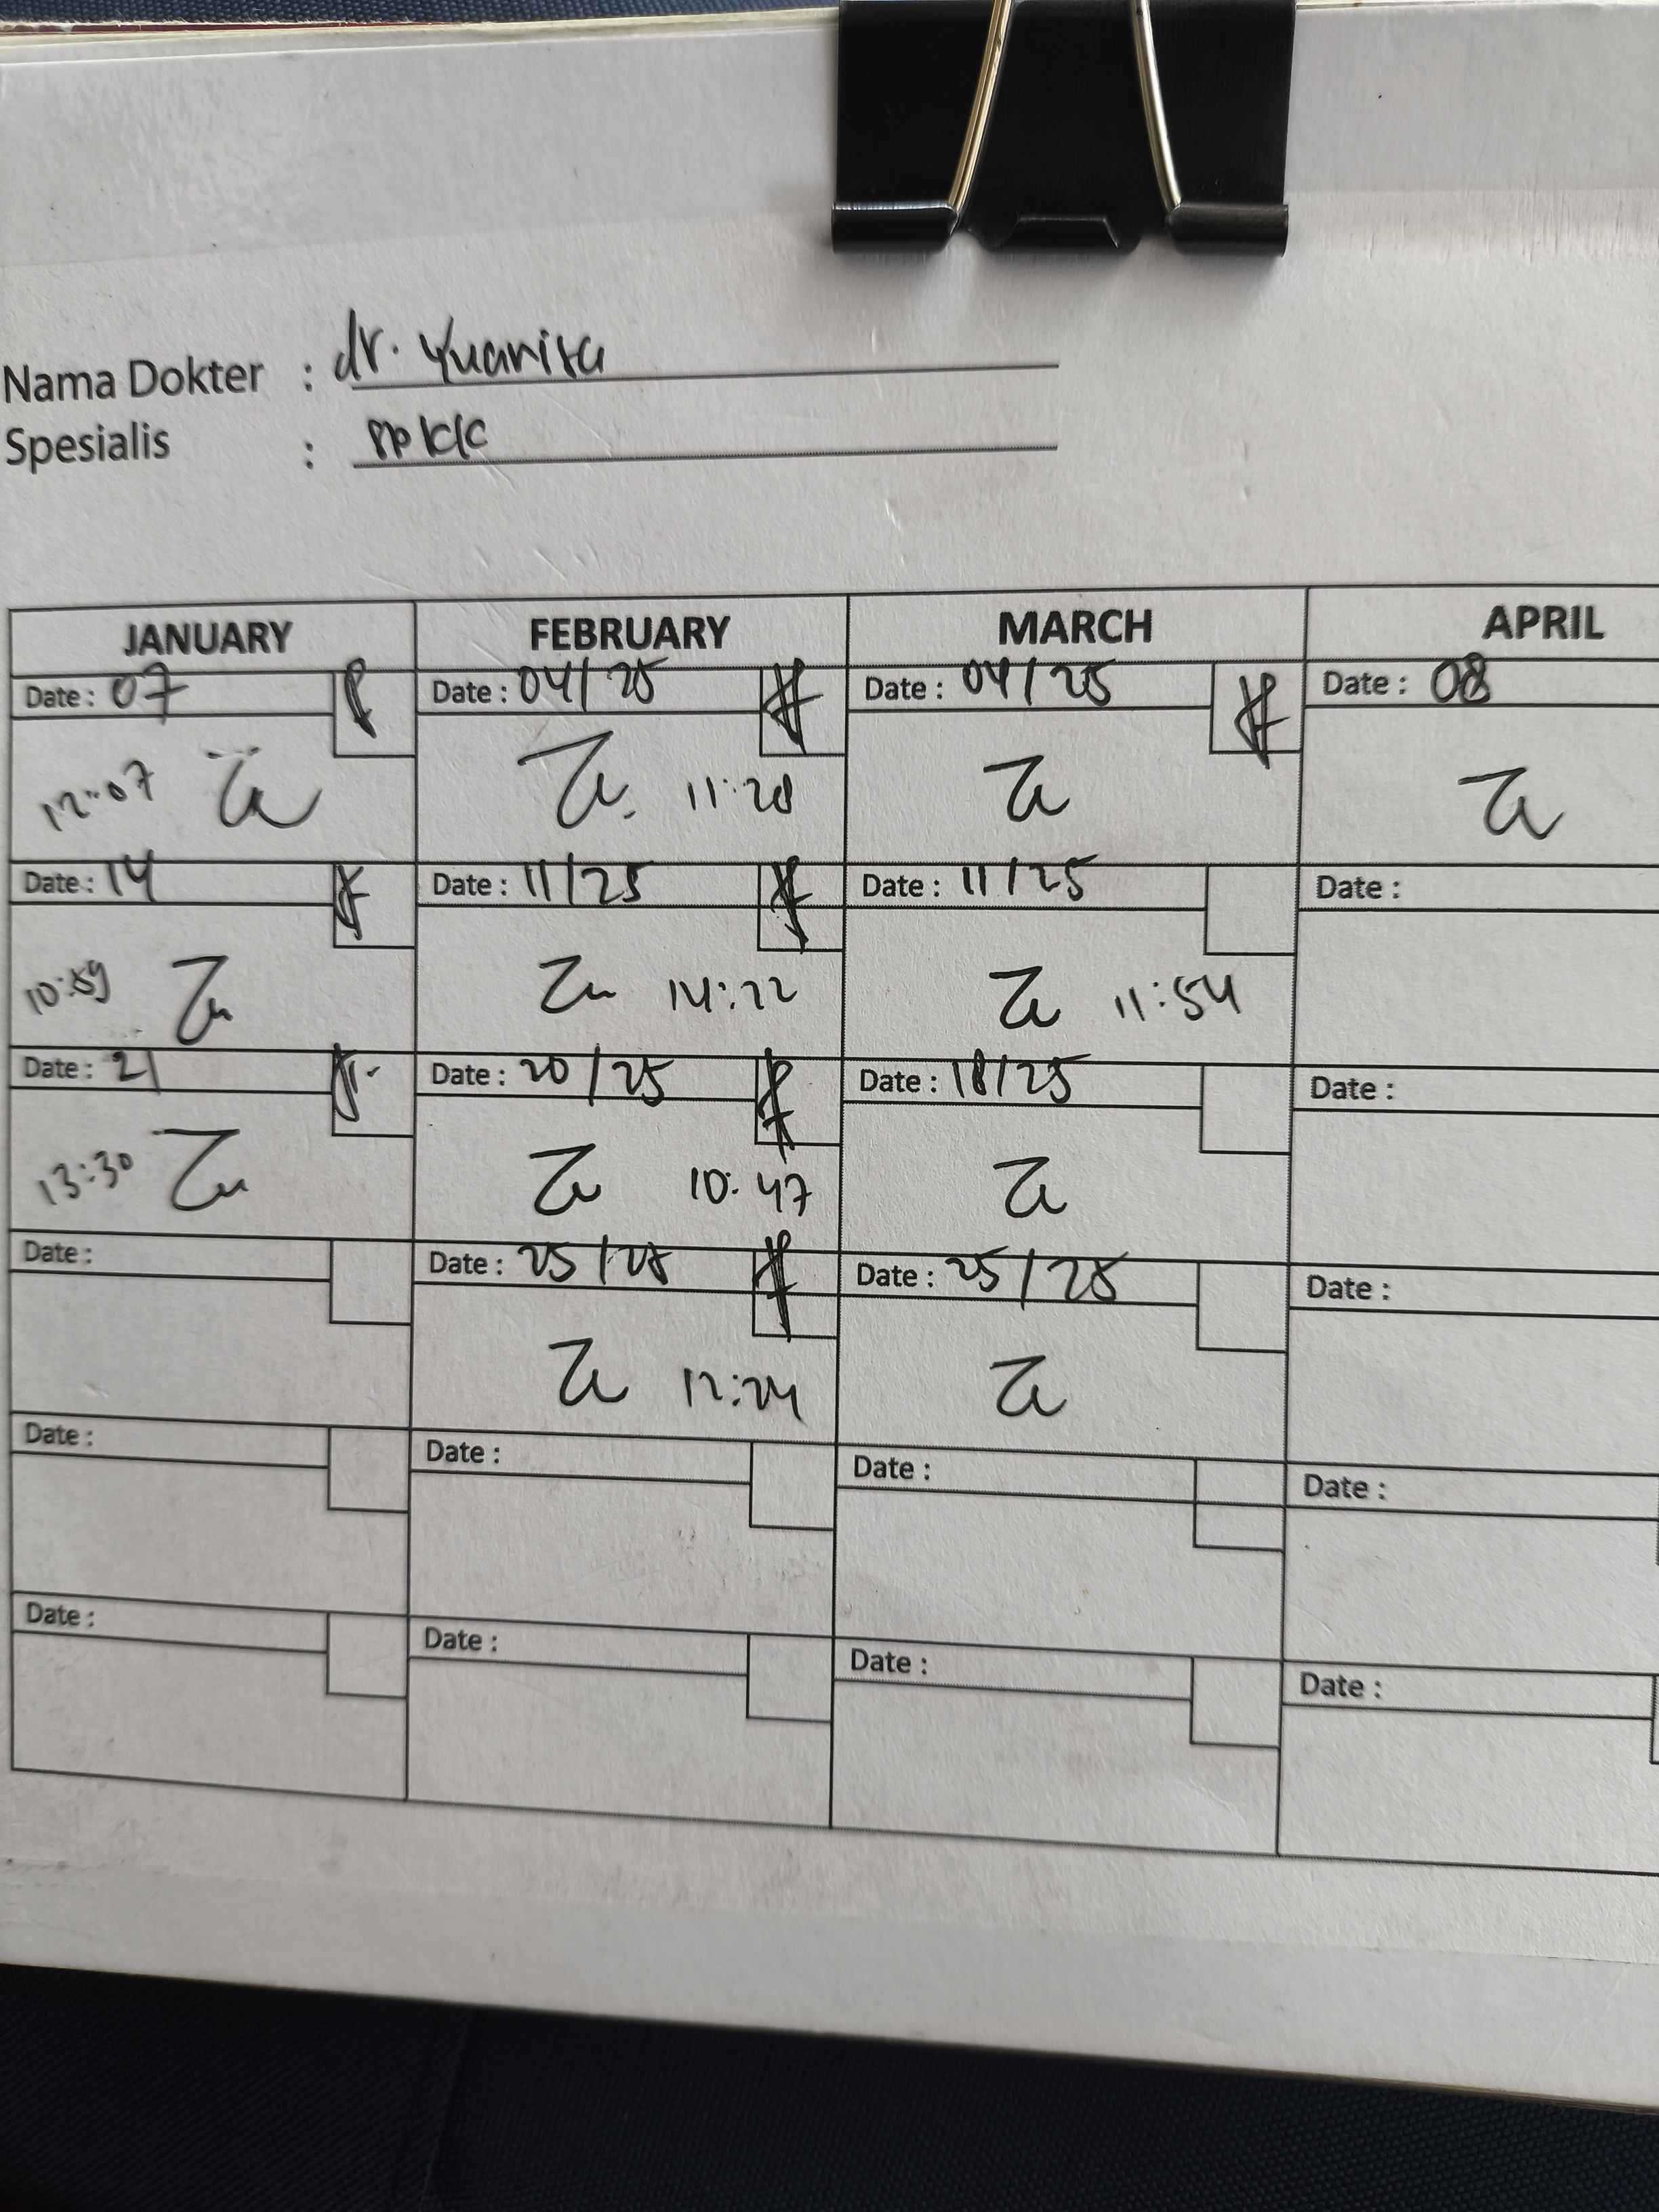 Nama Dokter : dr. Yuanita
Spesialis : SpKK
JANUARY FEBRUARY MARCH APRIL
Date : 07 Date : 04/25 Date : 04/25 Date : 08
12:07 11:28
Date : 14 Date : 11/25 Date : 11/25 Date :
10:59 14:22 11:54
Date : 21 Date : 20/25 Date : 18/25 Date :
13:30 10:47
Date : Date : 25/25 Date : 25/25 Date :
12:24
Date : Date : Date : Date :
Date : Date : Date : Date :